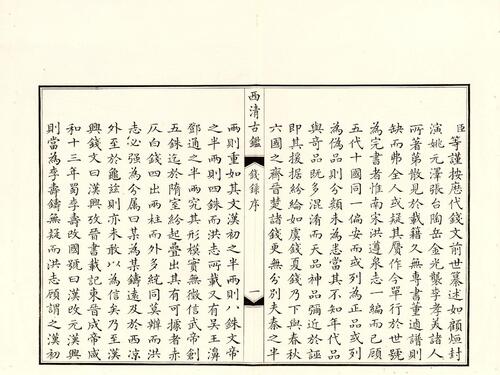 臣等謹按歴代錢文前世纂述如顧烜封
演姚元澤張台陶岳金光襲李孝美諸人
所著第散見於載籍久無專書董逌譜則
缺而弗全人或疑其贋作今單行於世號
為完書者惟南宋洪遵泉志一編而已顧
五代十國同一偏安而或列為正品或列
為偽品則分類未為悉當其不知年代品
與奇品既多混淆而天品神品彌近於誣
即其援據紛綸如虞錢夏錢乃下與春秋
六國之齊莒楚諸錢更無分別夫秦之半
西清古鑑
錢錄序
一
兩則重如其文漢初之半兩則八銖文帝
之半兩則四銖而洪志所載又有吴王濞
鄧通之半兩究其形模實無徵信武帝創
五銖迄於隋室紛起疊出其有可據者赤
仄白錢四出兩柱而外多統同莫辨而洪
志必强為分屬曰某為某鑄逺及於西凉
外至於龜兹則亦未敢以為信矣乃至漢
興錢文曰漢興攷晉書載記東晉成帝咸
和十三年蜀李壽改國號曰漢改元漢興
則當為李壽鑄無疑而洪志顧謂之漢初